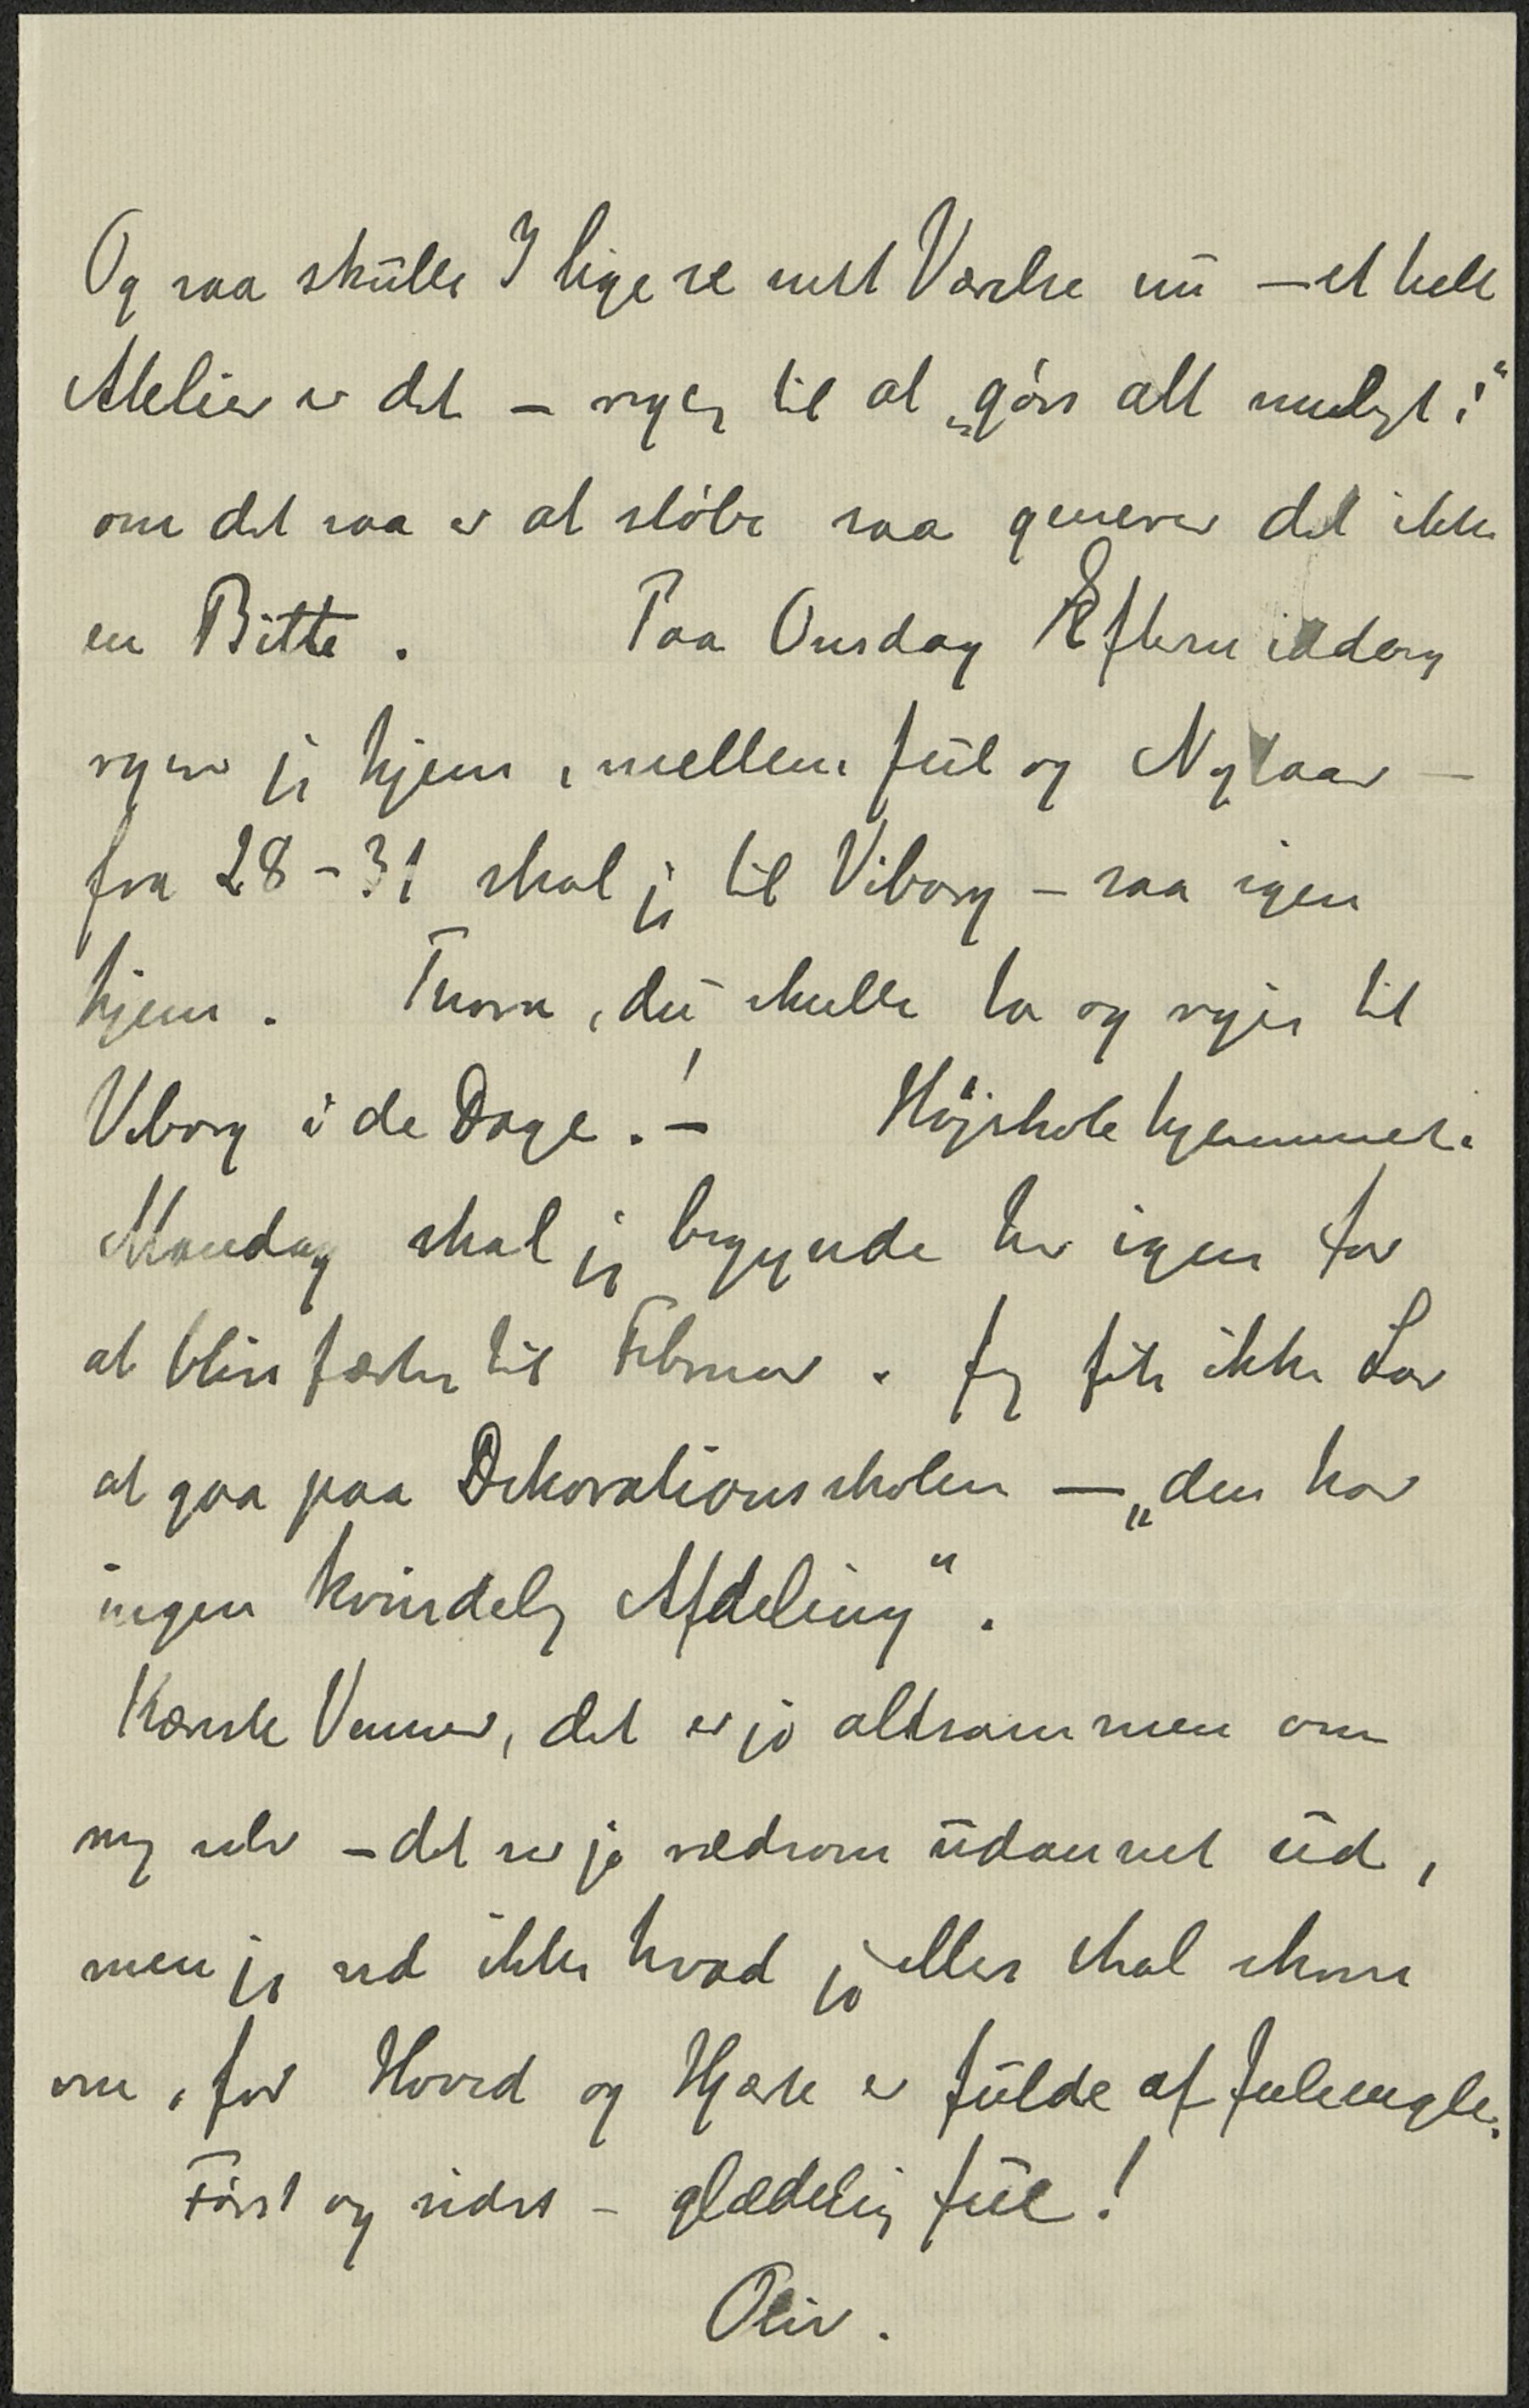 Og saa skulle I lige se mit Værelse nu – et helt
Atelier er det – rigtig til at „gøre alt muligt i"
om det saa er at støbe saa generer det ikke
en Bitte. Paa Onsdag Eftermiddag
rejser jeg hjem, mellem Jul og Nytaar –
fra 28-31 skal jeg til Viborg – saa igen
hjem. Thora, du skulle ta og rejse til
Viborg i de Dage.! – Højskolehjemmet.
Mandag skal jeg begynde her igen for
at blive færdig til Februar. Jeg fik ikke Lov
at gaa paa Dekorationsskolen – „den har
ingen kvindelig Afdeling".
Kæreste Venner, det er jo altsammen om
mig selv – det ser jo rædsom udannet ud,
men jeg ved ikke hvad jeg ellers skal skrive
om, for Hoved og Hjærte er fulde af Juleengle.
Først og sidst – glædelig Jul!
Oliv.